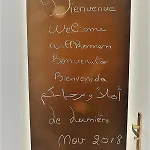 Bienvenue
Welcome
Willkommen
Benvenuto
Bienvenida
أهلا و مرحبا بكم
de Lumière
Nov 2018